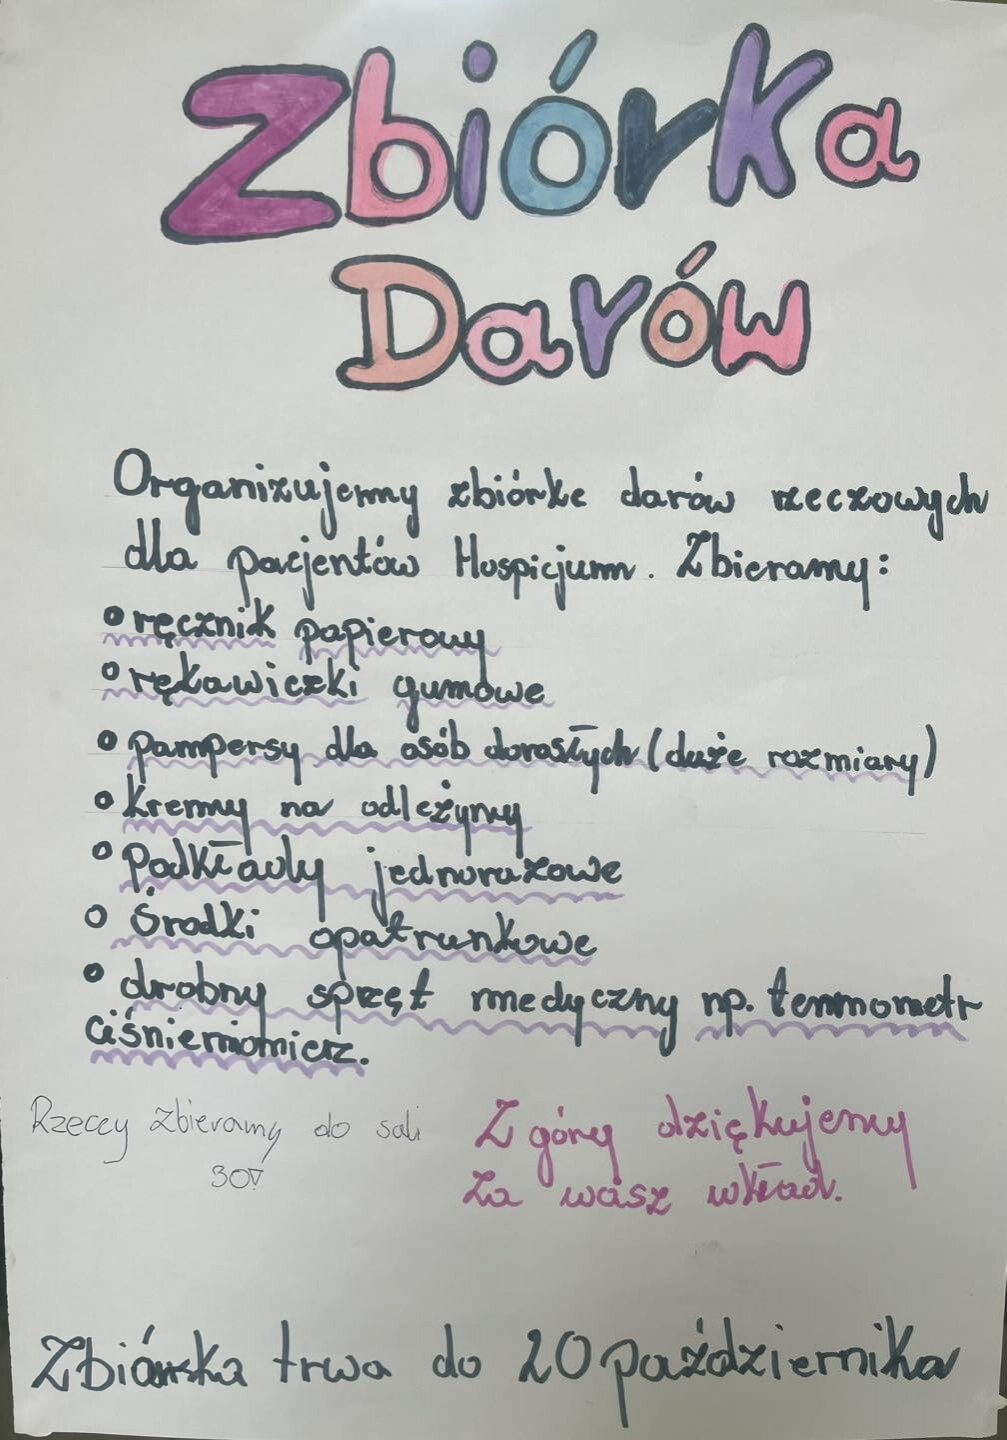 Zbiórka
Darów
Organizujemy zbiórke darów rzeczowych
dla pacjentów Hospicjum. Zbieramy:
• ręcznik papierowy
• rękawiczki gumowe
• pampersy dla osób dorosłych (duże rozmiary)
• kremy na odleżyny
• Podkłady jednorazowe
• Środki opatrunkowe
• drobny sprzęt medyczny np. termometr
ciśnieniomierz.
Rzeczy zbieramy do sali
Z góry dziękujemy
za wasz wkład.
Zbiórka trwa do 20 października